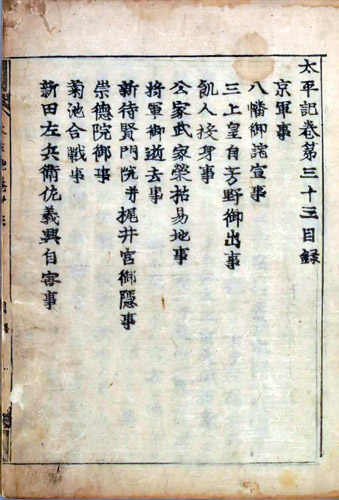 太平記巻第三十三目録
京軍事
八幡御詫宣事
三上皇自芳野御出事
飢人投身事
公家武家榮枯易地事
將軍御逝去事
新待賢門院并梶井宮御隱事
崇徳院御事
菊池合戰事
新田左兵衛佐義興自害事